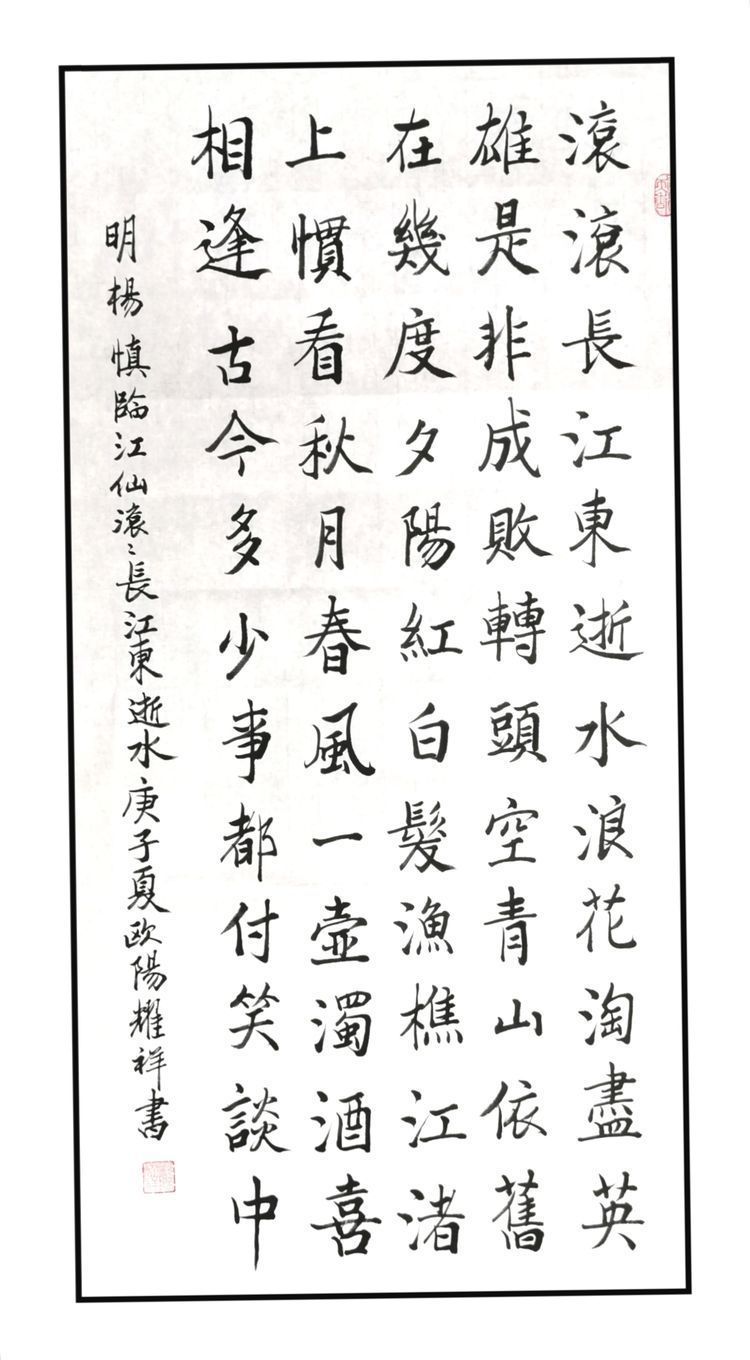 滾滾長江東逝水浪花淘盡英
雄是非成敗轉頭空青山依舊
在幾度夕陽紅白髮漁樵江渚
上慣看秋月春風一壺濁酒喜
相逢古今多少事都付笑談中
明楊慎臨江仙滾〻長江東逝水庚子夏欧陽耀祥書